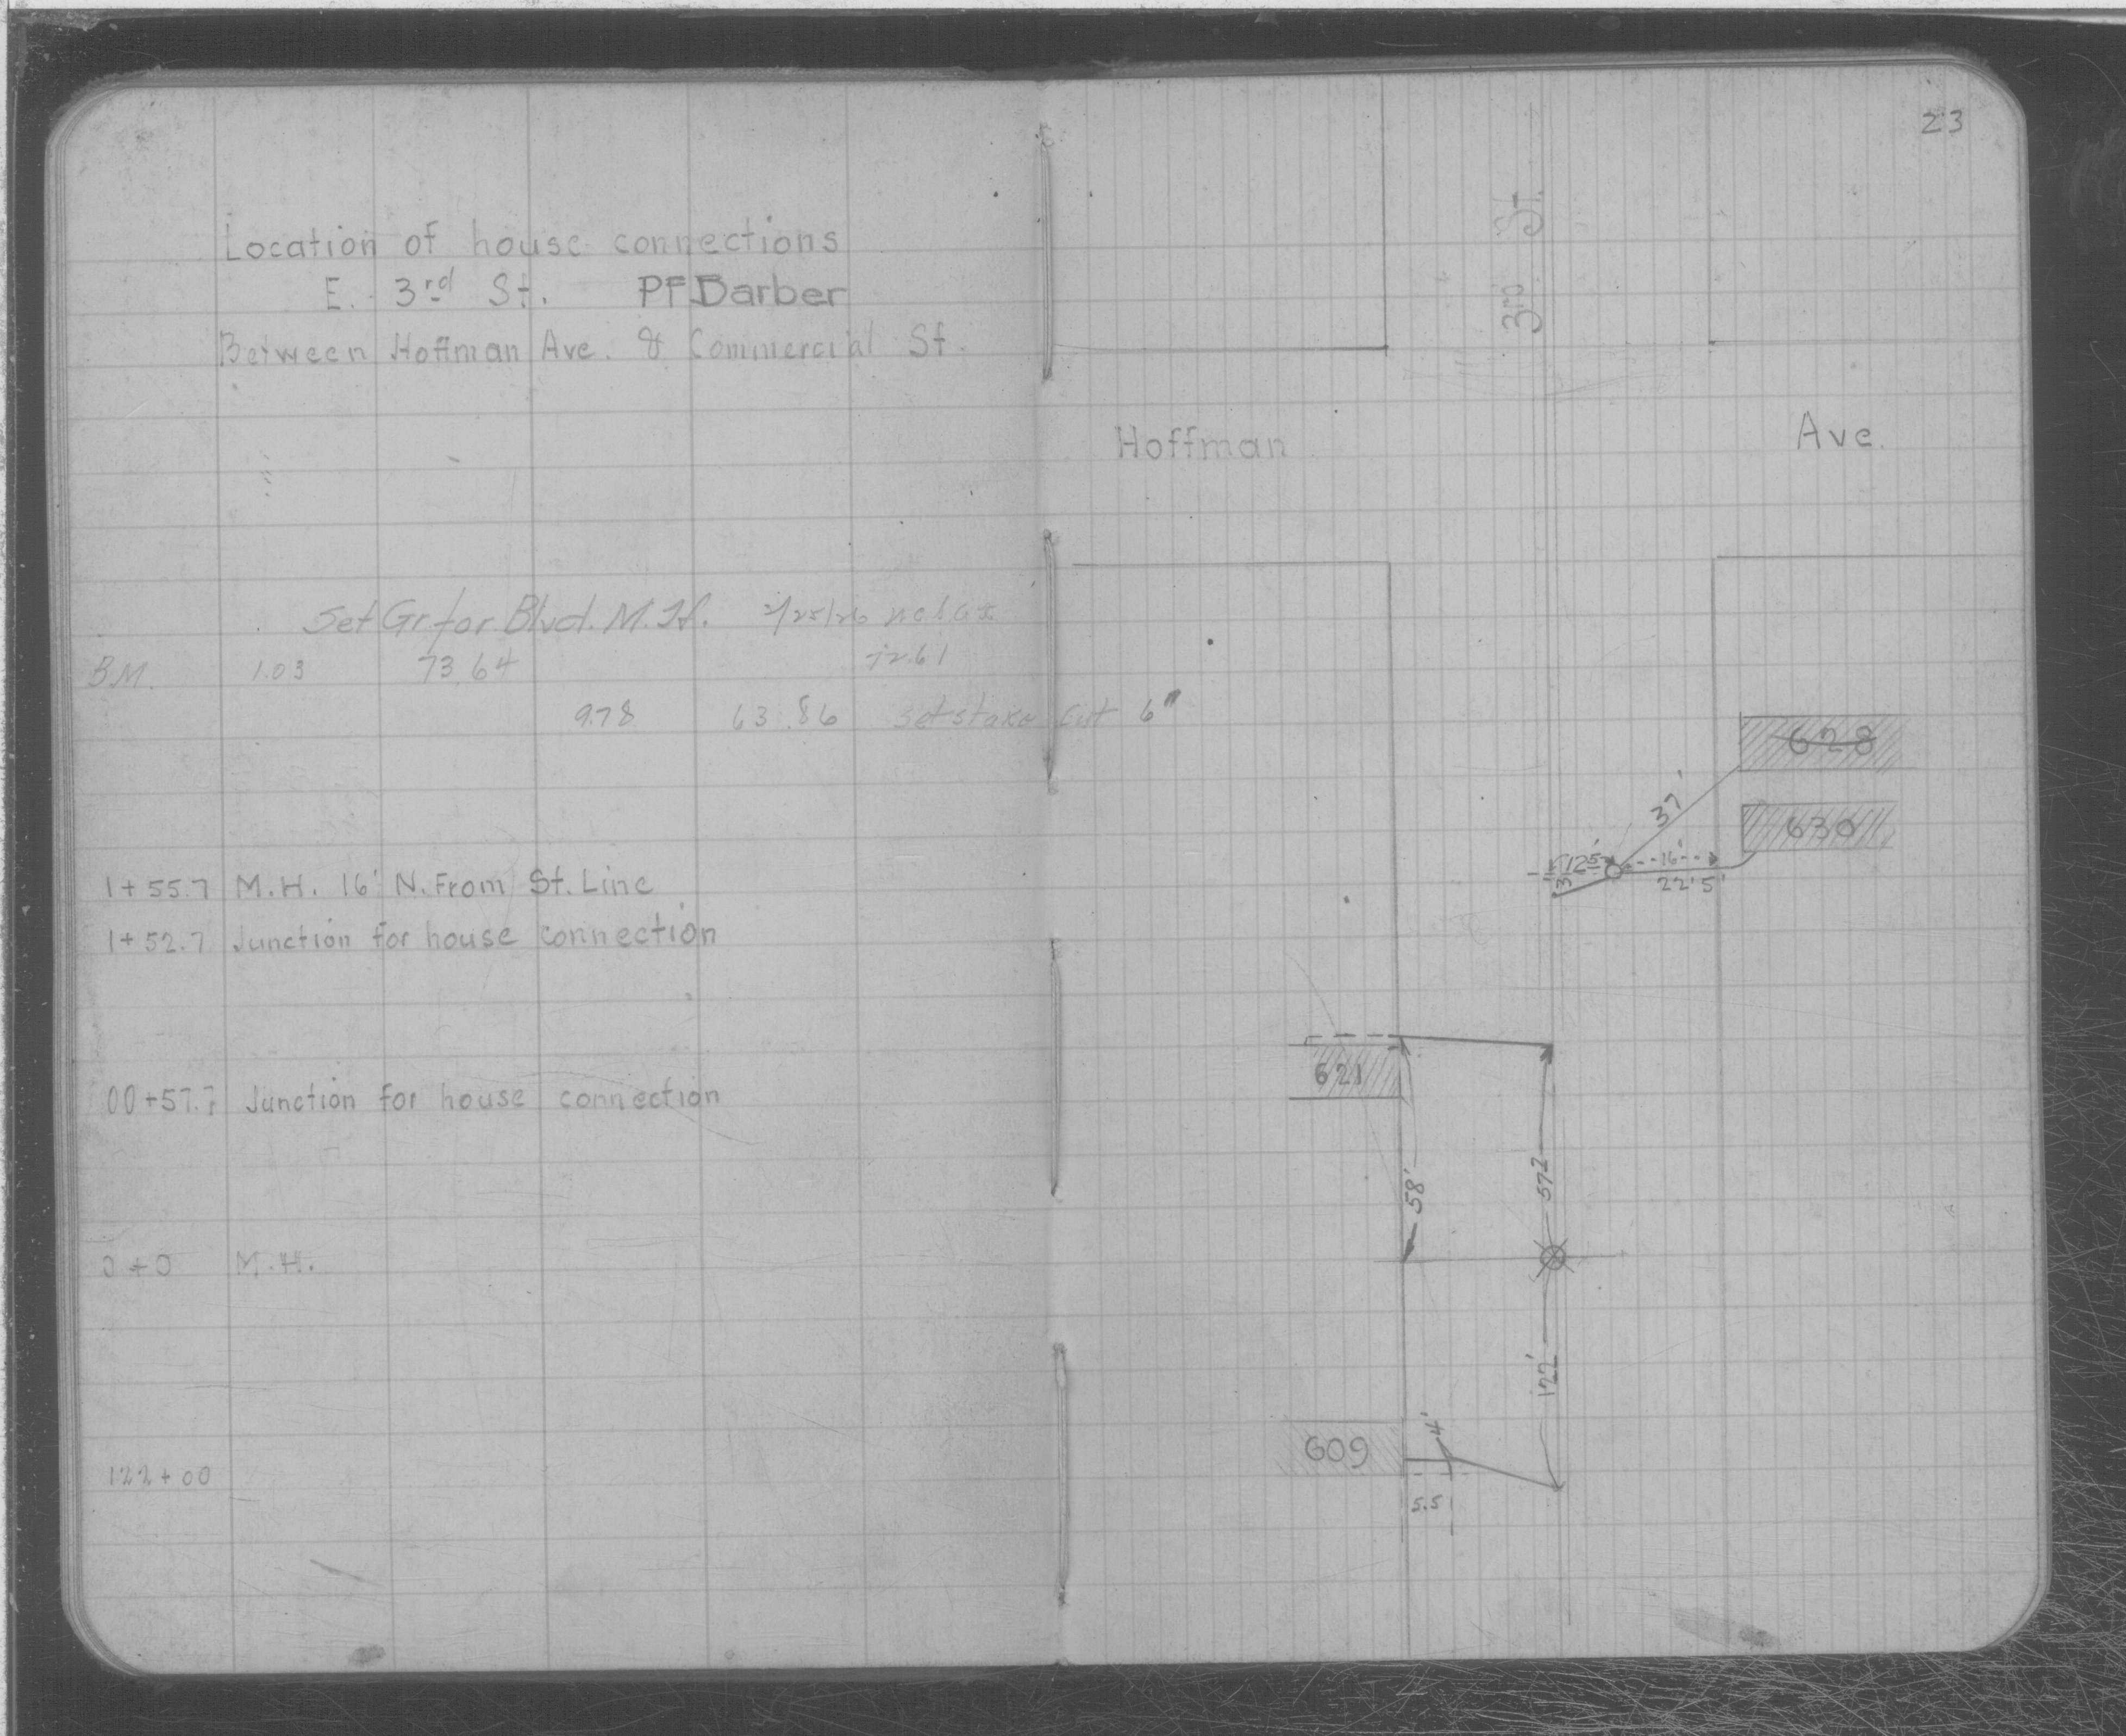 Location of house connections
E. 3rd St. PF Barber
Between Hoffman Ave. & Commercial St.
Set Gr. for Blvd. M.H. 2/25/26
B.M. 1.03 73.64 72.61
9.78 63.86 set stake cut 6"
1+55.7 M.H. 16' N. From St. Line
1+52.7 Junction for house connection
00+57.7 Junction for house connection
0+0 M.H.
122+00
23
3rd St.
Hoffman Ave.
628
37'
630
12.5' 16'
3 22'5'
621
58' 572
122'
609 4'
5.5